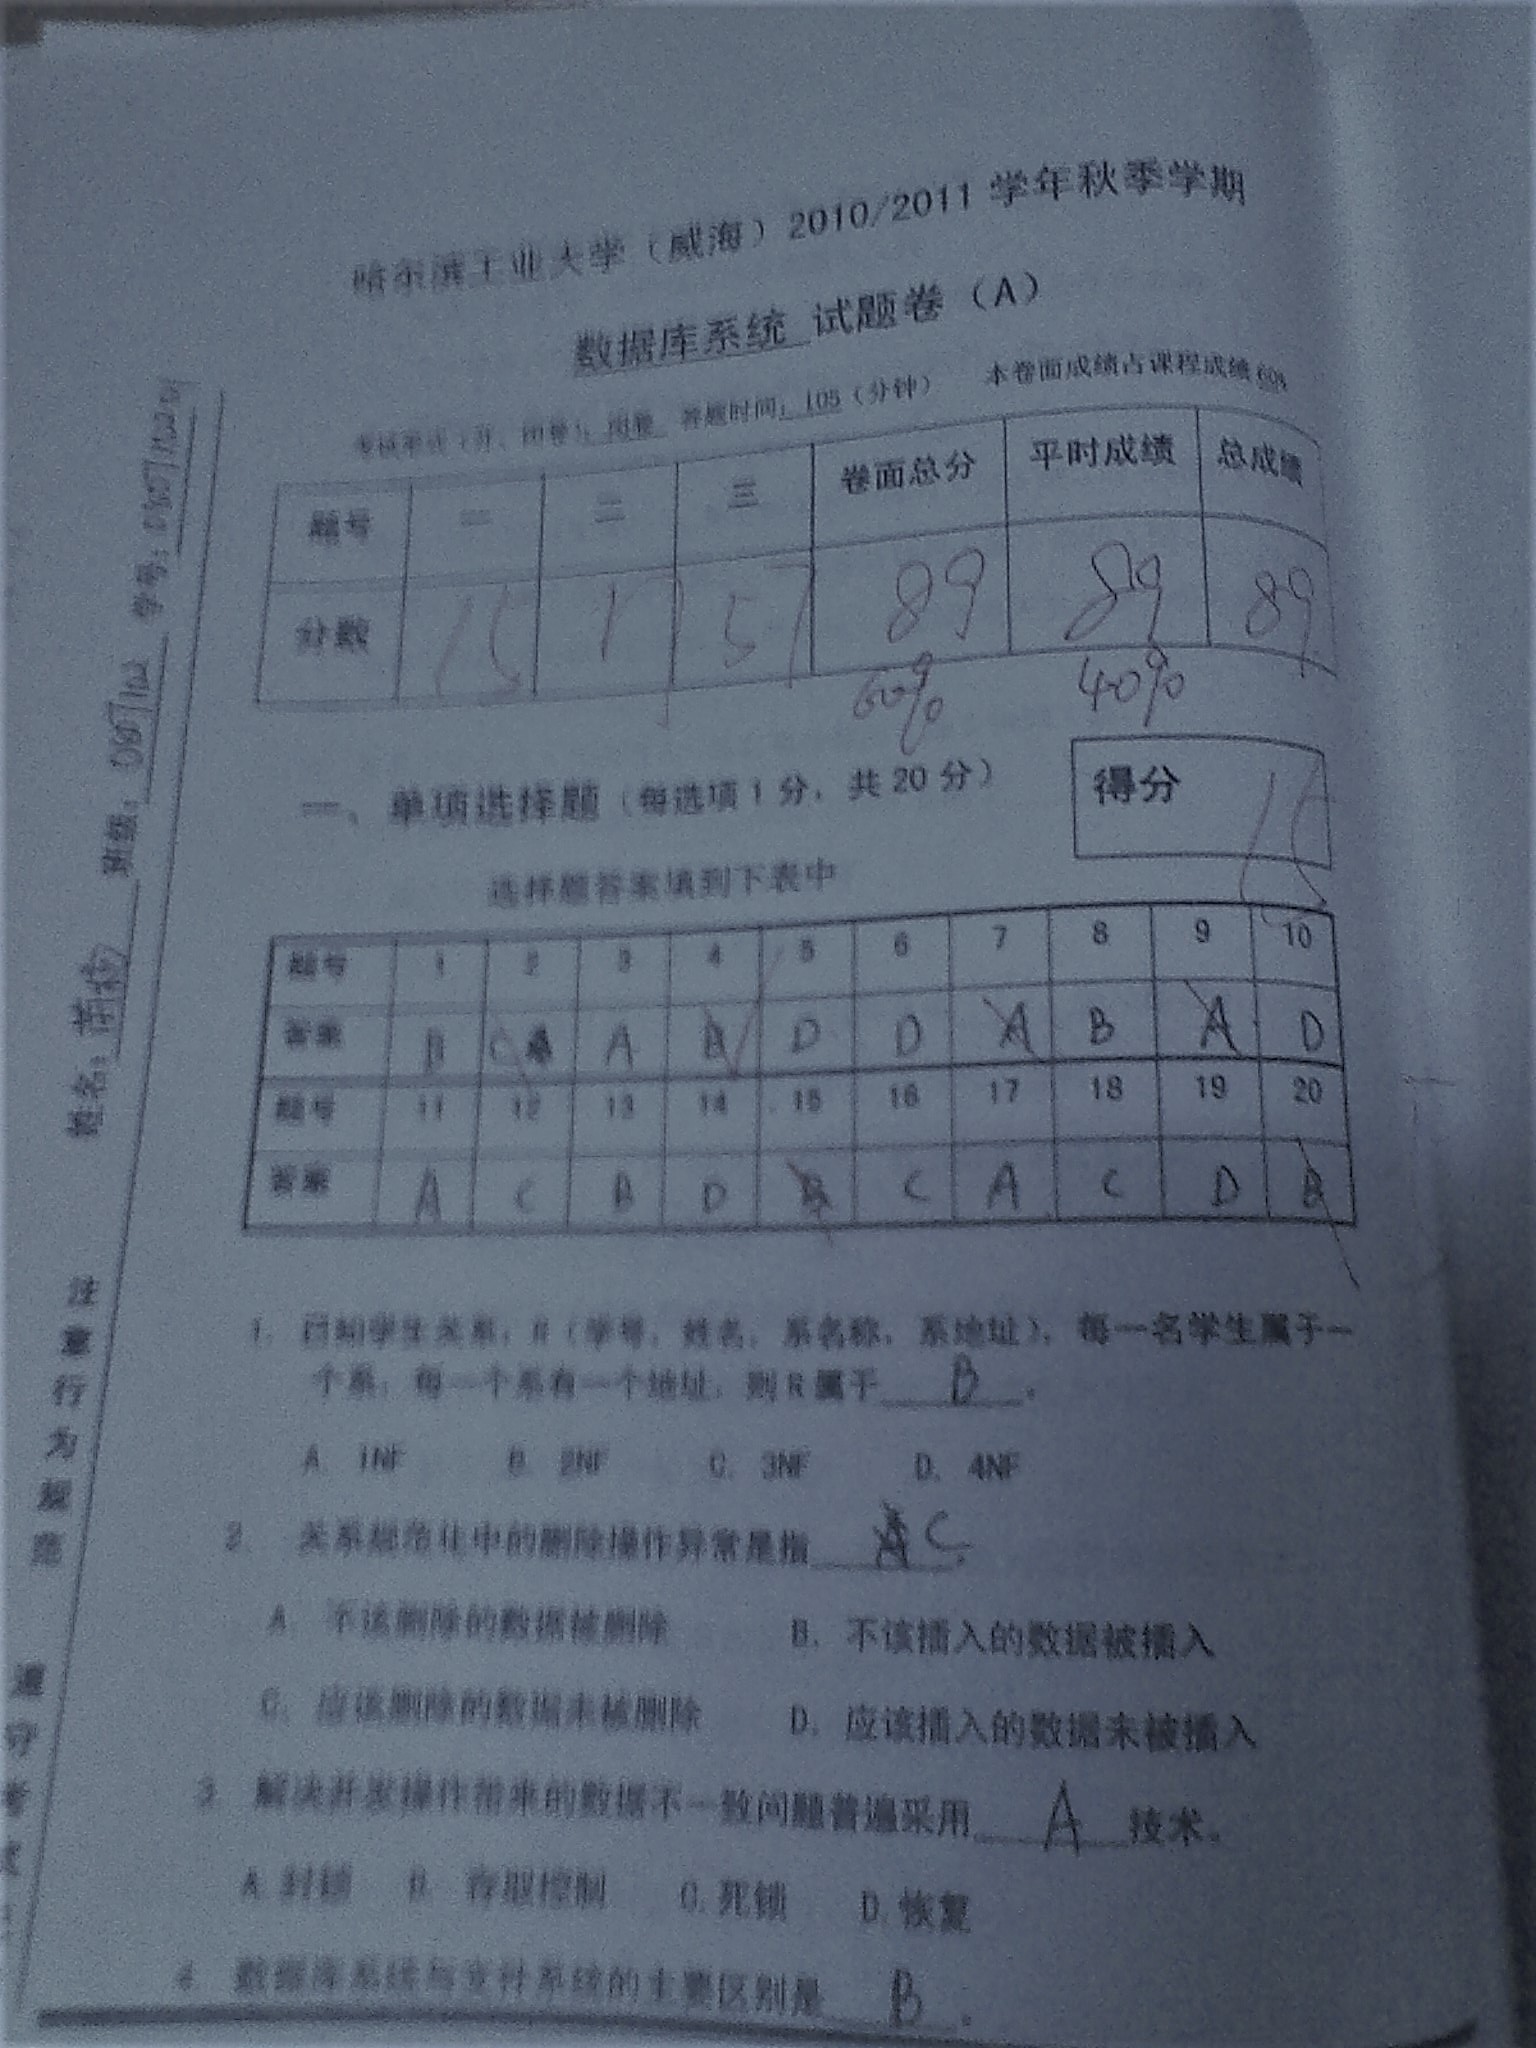 哈尔滨工业大学（威海）2010/2011 学年秋季学期
数据库系统 试题卷（A）
考试形式（开、闭卷）：闭卷 答题时间：105（分钟） 本卷面成绩占课程成绩 60%
题号 一 二 三 卷面总分 平时成绩 总成绩
分数 15 17 57 89 89 89
60% 40%
一、单项选择题（每选项 1 分，共 20 分）
得分 15
选择题答案填到下表中
题号 1 2 3 4 5 6 7 8 9 10
答案 B C A B D D A B A D
题号 11 12 13 14 15 16 17 18 19 20
答案 A C B D B C A C D B
1. 已知学生关系：R（学号，姓名，系名称，系地址），每一名学生属于一
个系，每一个系有一个地址，则 R 属于 B 。
A. 1NF B. 2NF C. 3NF D. 4NF
2. 关系规范化中的删除操作异常是指 C
A. 不该删除的数据被删除 B. 不该插入的数据被插入
C. 应该删除的数据未被删除 D. 应该插入的数据未被插入
3. 解决并发操作带来的数据不一致问题普遍采用 A 技术。
A.封锁 B. 存取控制 C.死锁 D.恢复
4. 数据库系统与文件系统的主要区别是 B 。
姓名： 班级：0807102 学号：
注意行为规范
遵守考